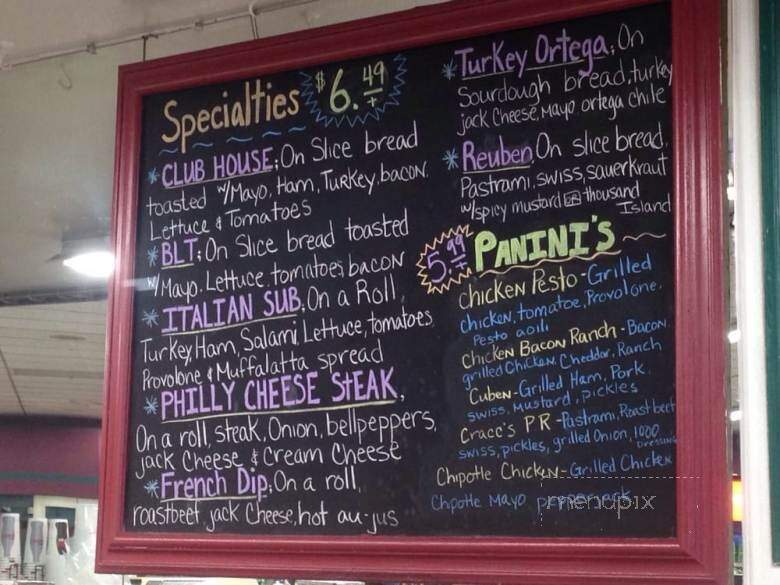 Specialties $6.49+
* CLUB HOUSE; On Slice bread
toasted w/Mayo, Ham, Turkey, bacon
Lettuce & Tomatoes
* BLT; On Slice bread toasted
w/Mayo. Lettuce tomatoes bacon
* ITALIAN SUB, On a Roll
Turkey, Ham, Salami, Lettuce, tomatoes
Provolone & Muffalatta spread
* PHILLY CHEESE StEAK,
On a roll, steak, Onion, bellpeppers,
jack Cheese & Cream Cheese
* French Dip, On a roll,
roastbeef jack Cheese, hot au-jus
* Turkey Ortega, On
Sourdough bread, turkey
jack Cheese, Mayo ortega chile
* Reuben, On slice bread
Pastrami, swiss, sauerkraut
w/spicy mustard or thousand
Island
5.99+ PANINI'S
Chicken Pesto - Grilled
Chicken, tomatoe, Provolone,
Pesto aoili
Chicken Bacon Ranch - Bacon,
grilled Chicken Cheddar, Ranch
Cuben - Grilled Ham, Pork,
swiss, mustard, pickles
Cracc's PR - Pastrami, Roast beef
swiss, pickles, grilled Onion, 1000
Dressing
Chipotle Chicken - Grilled Chicken
Chpotle Mayo
menupix